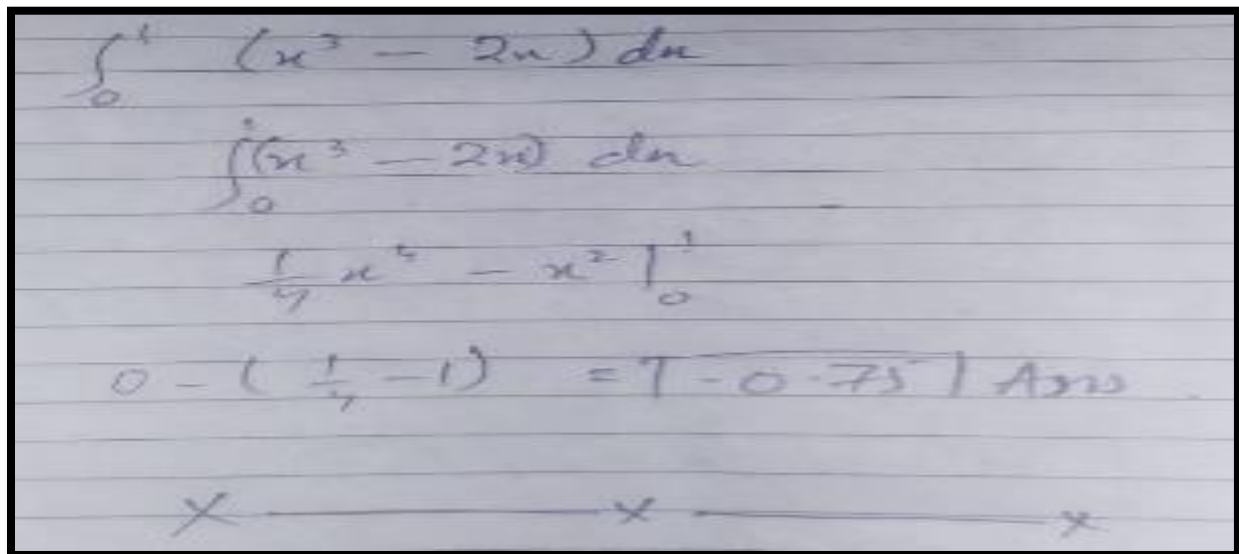 ∫₀¹ (x³ − 2x) dx
∫₀¹ (x³ − 2x) dx
1/4 x⁴ − x² |₀¹
0 − (1/4 − 1) = -0.75 Ans.
× ——— × ——— ×